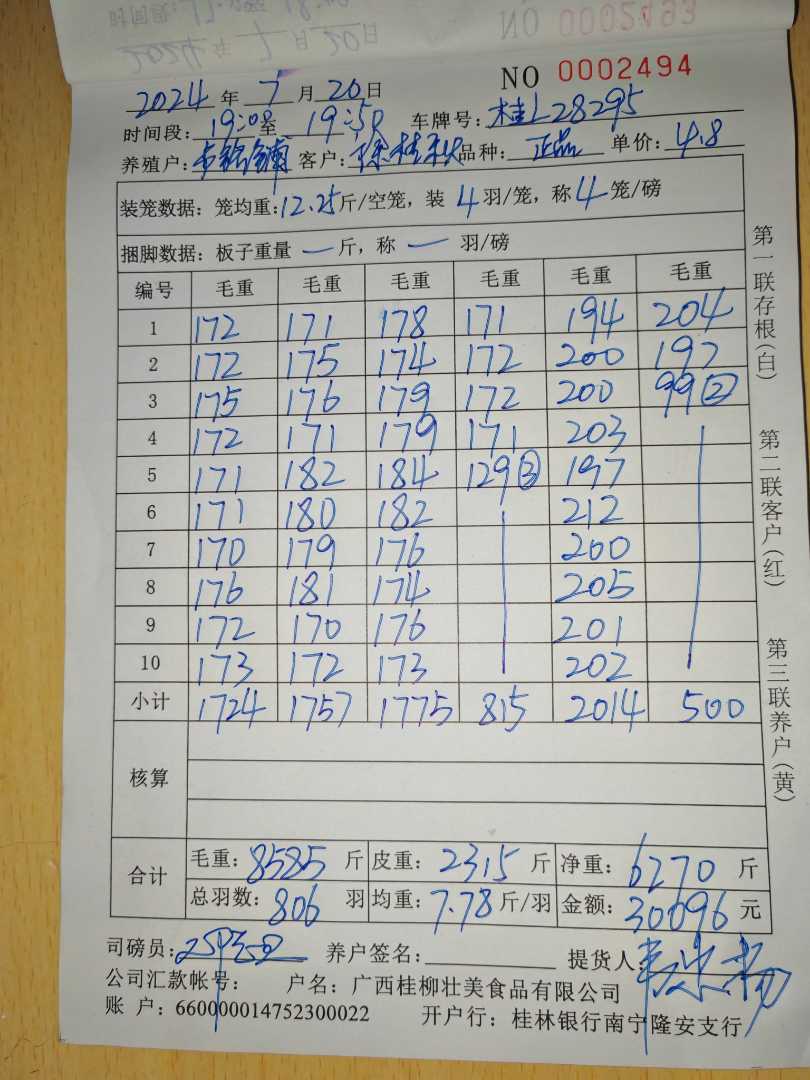 NO 0002493
2024年7月20日
NO 0002494
2024年7月20日
时间段:19:08至19:50 车牌号:桂L28295
养殖户: 客户:徐桂秋 品种:正品 单价:4.8
装笼数据: 笼均重:12.25斤/空笼,装4羽/笼,称4笼/磅
捆脚数据: 板子重量 一 斤,称 一 羽/磅
编号 毛重 毛重 毛重 毛重 毛重 毛重
1 172 171 178 171 194 204
2 172 175 174 172 200 197
3 175 176 179 172 200 99②
4 172 171 179 171 203
5 171 182 184 129③ 197
6 171 180 182 212
7 170 179 176 200
8 176 181 174 205
9 172 170 176 201
10 173 172 173 202
小计 1724 1757 1775 815 2014 500
核算
合计 毛重:8585斤 皮重:2315斤 净重:6270斤
总羽数:806羽 均重:7.78斤/羽 金额:30096元
司磅员: 养户签名: 提货人:
公司汇款帐号: 户名:广西桂柳壮美食品有限公司
账 户:660000014752300022 开户行:桂林银行南宁隆安支行
第一联存根(白) 第二联客户(红) 第三联养户(黄)